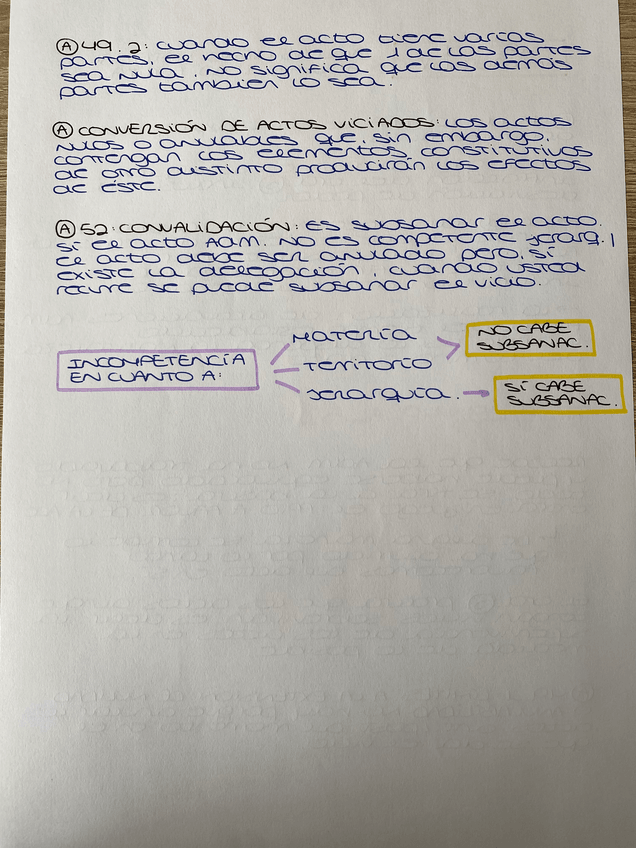 Ⓐ 49.2: cuando el acto tiene varias
partes, el hecho de que 1 de las partes
sea nula, no significa que las demás
partes también lo sea.
Ⓐ CONVERSIÓN DE ACTOS VICIADOS: LOS actos
nulos o anulables que, sin embargo,
contengan los elementos constitutivos
de otro distinto producirán los efectos
de éste.
Ⓐ 52: CONVALIDACIÓN: es subsanar el acto.
Si el acto Adm. no es competente jerarq. |
el acto debe ser anulado pero, si
existe la delegación, cuando usted
recurre se puede subsanar el vicio.
INCOMPETENCIA
EN CUANTO A:
Materia
Territorio
Jerarquía.
NO CABE
SUBSANAC.
SÍ CABE
SUBSANAC.